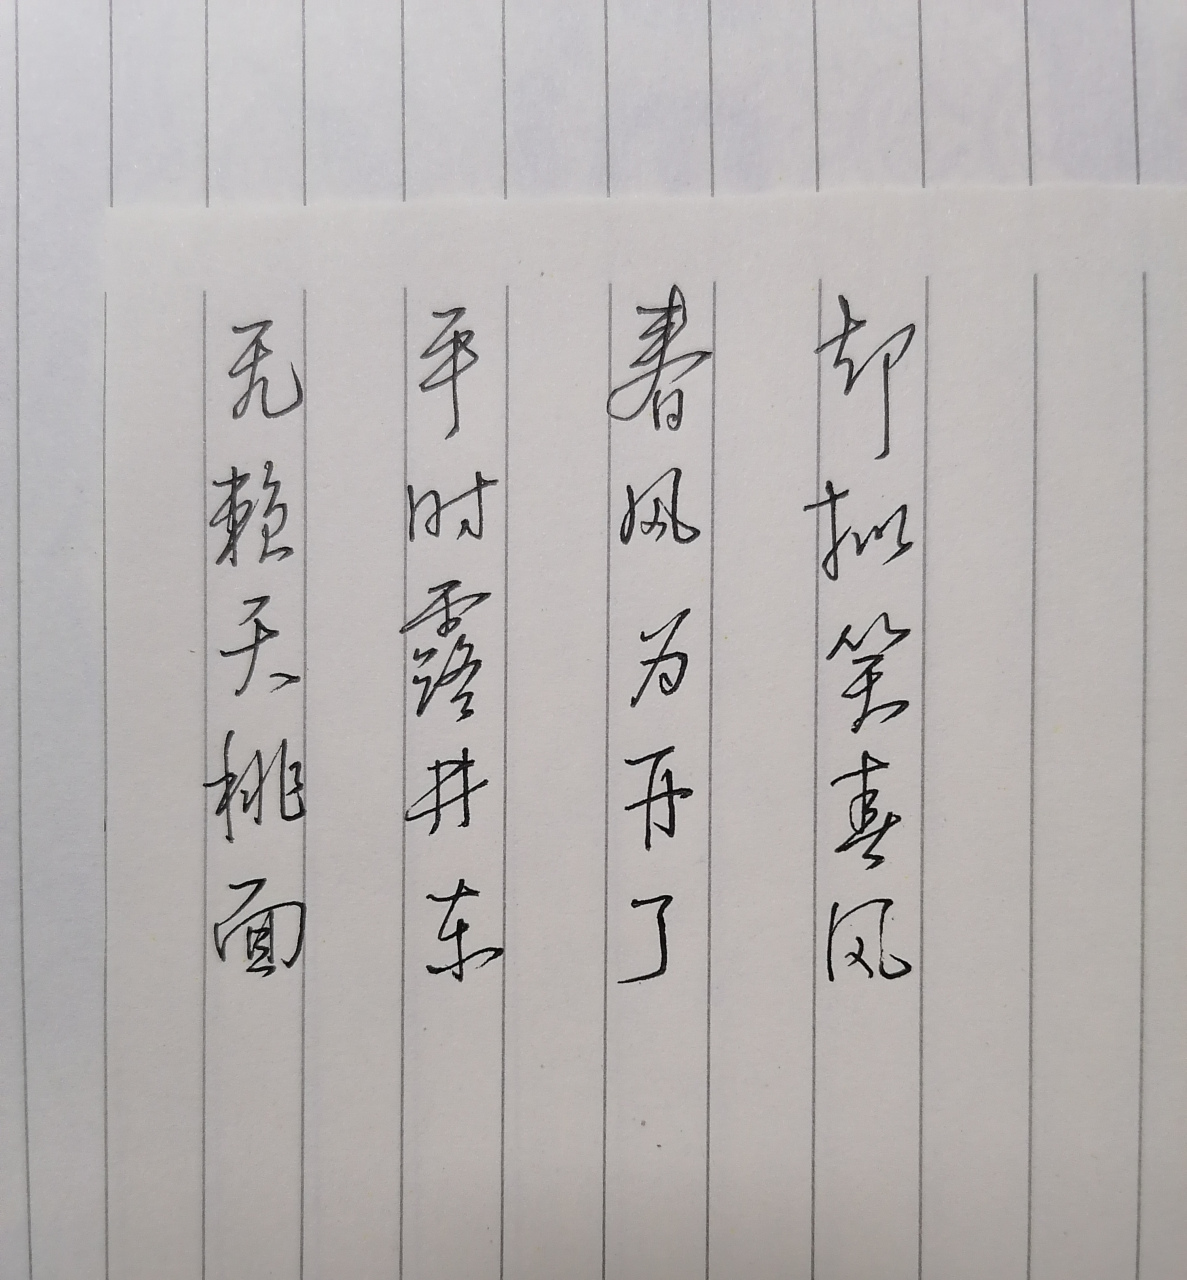 无赖夭桃面
平时露井东
春风为开了
却拟笑春风